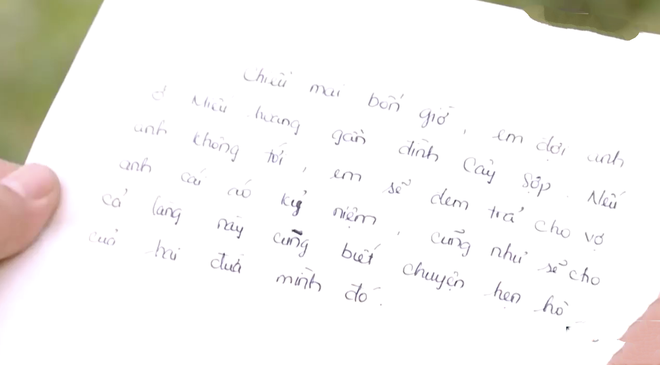 Chiều mai bốn giờ, em đợi anh
ở Miếu hoang gần đình Cây Sộp. Nếu
anh không tới, em sẽ đem trả cho vợ
anh cái áo kỷ niệm, cũng như sẽ cho
cả làng này cũng biết chuyện hẹn hò
của hai đứa mình đó.